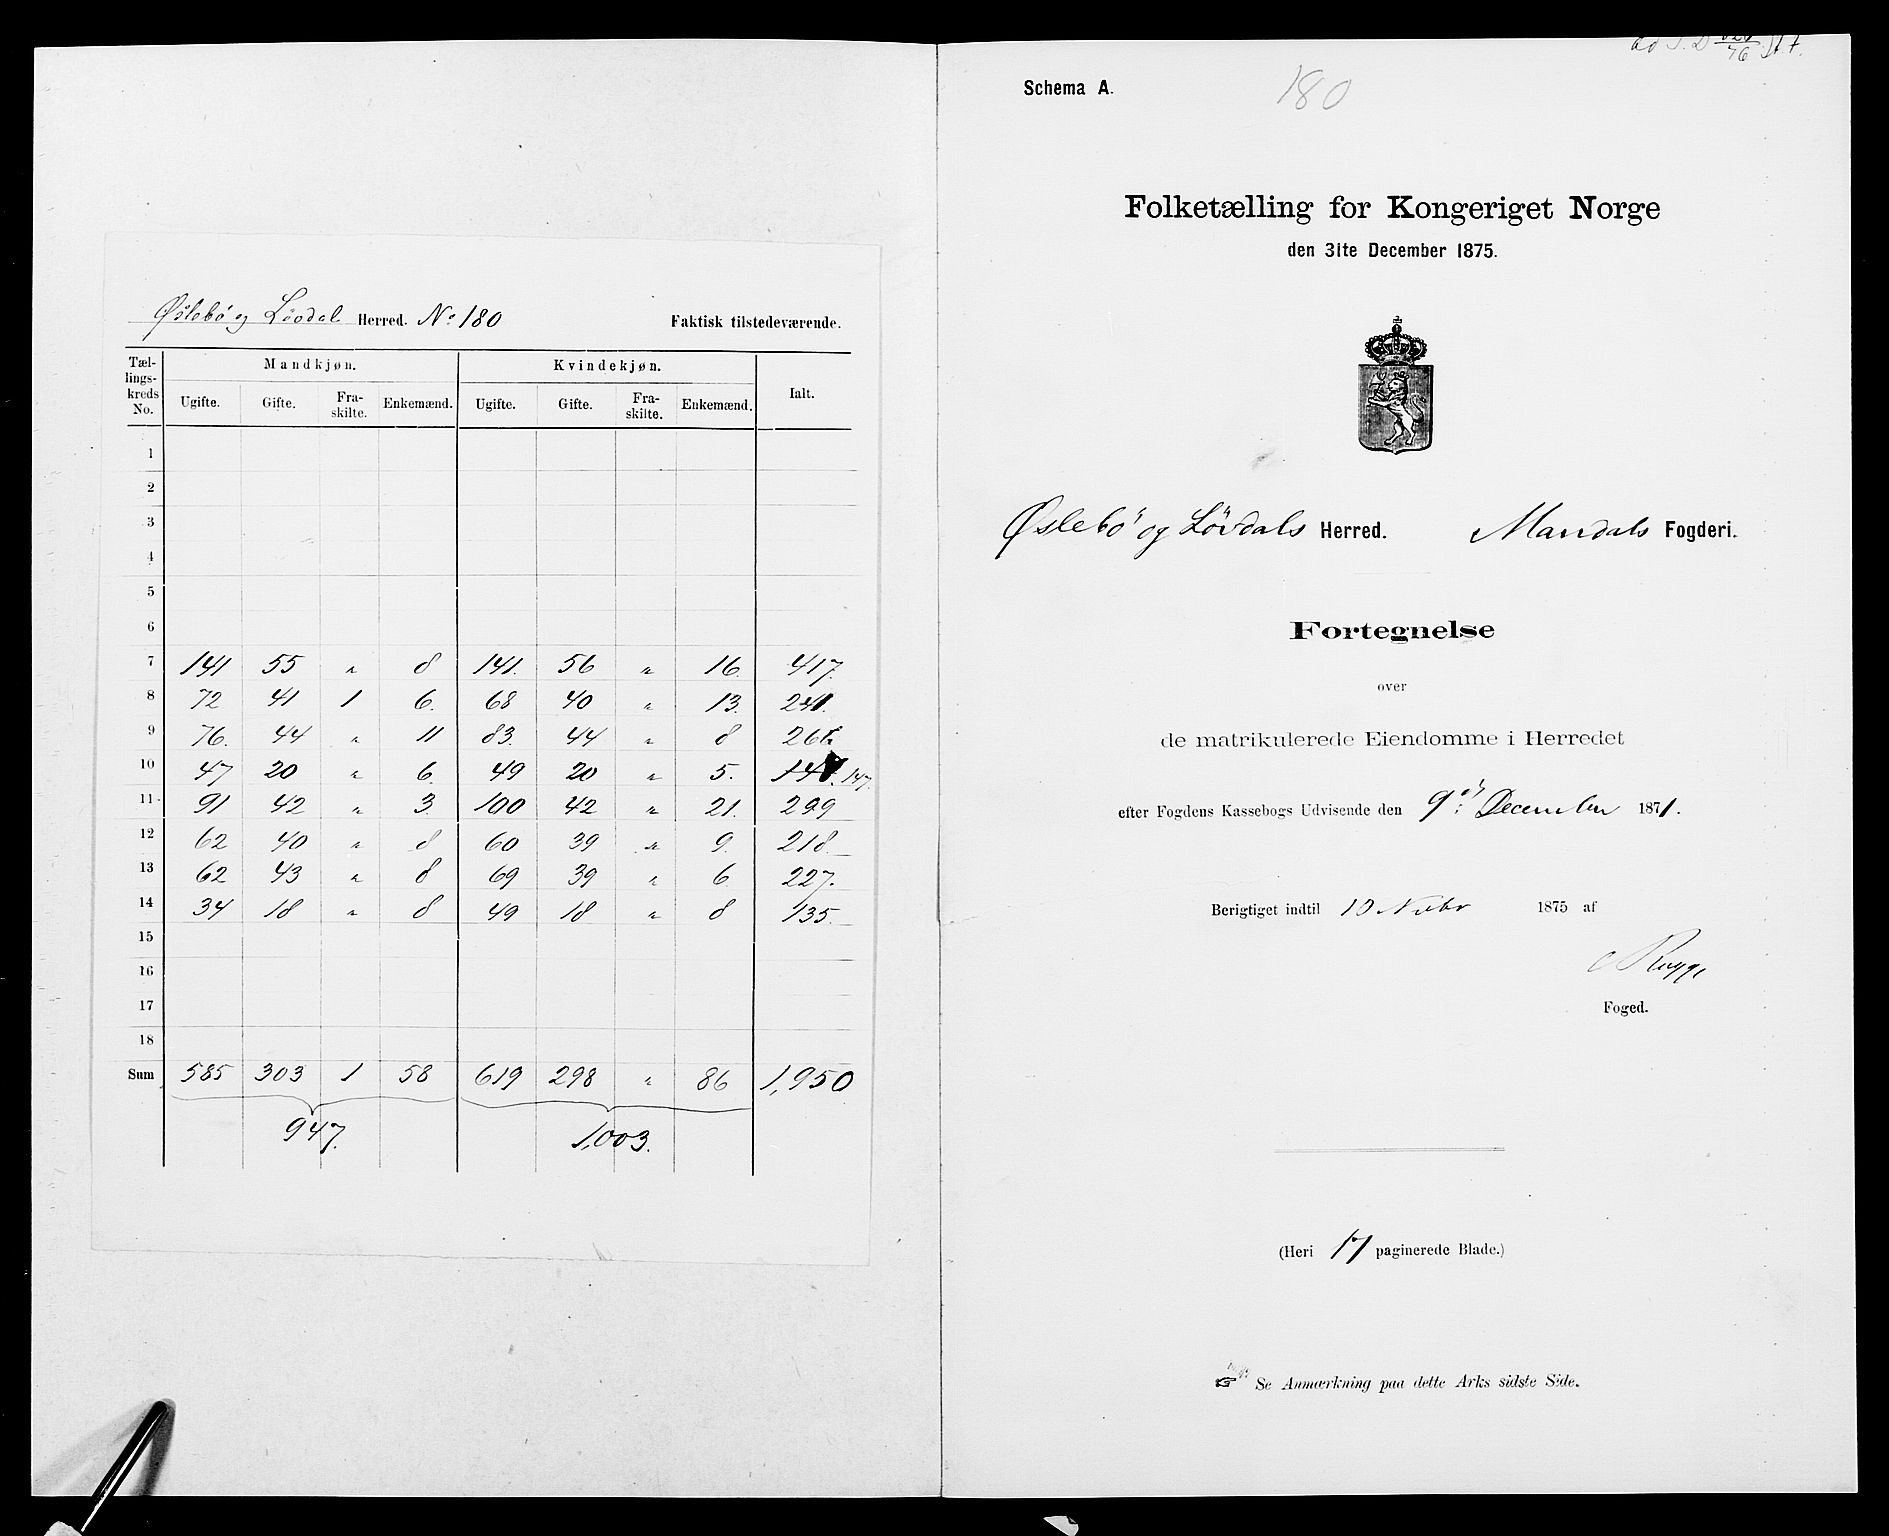 Øslebö og Lövdal Herred. No 180
Faktisk tilstedeværende.
Tællingskreds No. Mandkjøn. Kvindekjøn. Ialt.
Ugifte. Gifte. Fraskilte. Enkemænd. Ugifte. Gifte. Fraskilte. Enkemænd.
1
2
3
4
5
6
7 141 55 " 8 141. 56 " 16. 417.
8 72 41 1 6. 68 40 " 13. 241.
9 76. 44 " 11 83. 44 " 8 266
10 47 20 " 6. 49 20 " 5. 147. 147.
11 91 42 " 3. 100 42 " 21. 299
12 62 40 " 8 60 39 " 9. 218.
13 62 43 " 8 69 39 " 6. 227.
14 34 18 " 8 49 18 " 8 135.
15
16
17
18
Sum 585 303 1 58 619 298 " 86 1,950
947. 1,003.
76
Schema A. 180
Folketælling for Kongeriget Norge
den 31te December 1875.
Øslebö og Lövdals Herred. Mandals Fogderi.
Fortegnelse
over
de matrikulerede Eiendomme i Herredet
efter Fogdens Kassebogs Udvisende den 9de December 1871.
Berigtiget indtil 10 Novbr 1875 af
Rygge
Foged.
(Heri 17 paginerede Blade.)
☞ Se Anmærkning paa dette Arks sidste Side.